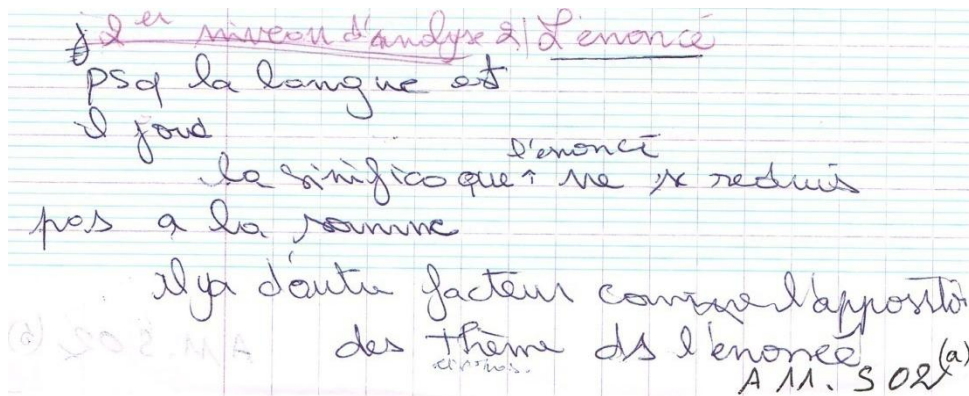 2er niveau d'analyse 2/ L'enoncé
psq la langue est
Il faud
l'enoncé
la sinifico que ne se reduis
pas a la somme
il ya d'autre facteur comme l'appositio
des thème ds l'enoncé
A 11. S 02 (a)